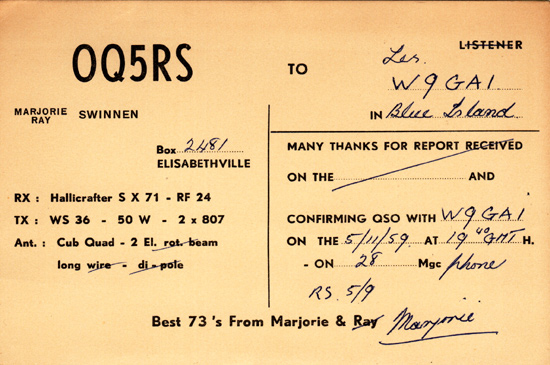 OQ5RS
MARJORIE
RAY
SWINNEN
Box 2481
ELISABETHVILLE
RX : Hallicrafter S X 71 - RF 24
TX : WS 36 - 50 W - 2 x 807
Ant. : Cub Quad - 2 El. rot. beam
long wire - di - pole
LISTENER
TO Les.
W9GAI
IN Blue Island
MANY THANKS FOR REPORT RECEIVED
ON THE AND
CONFIRMING QSO WITH W9GAI
ON THE 5/11/59 AT 19 40 GMT H.
- ON 28 Mgc phone
RS. 5/9
Best 73 's From Marjorie & Ray Marjorie